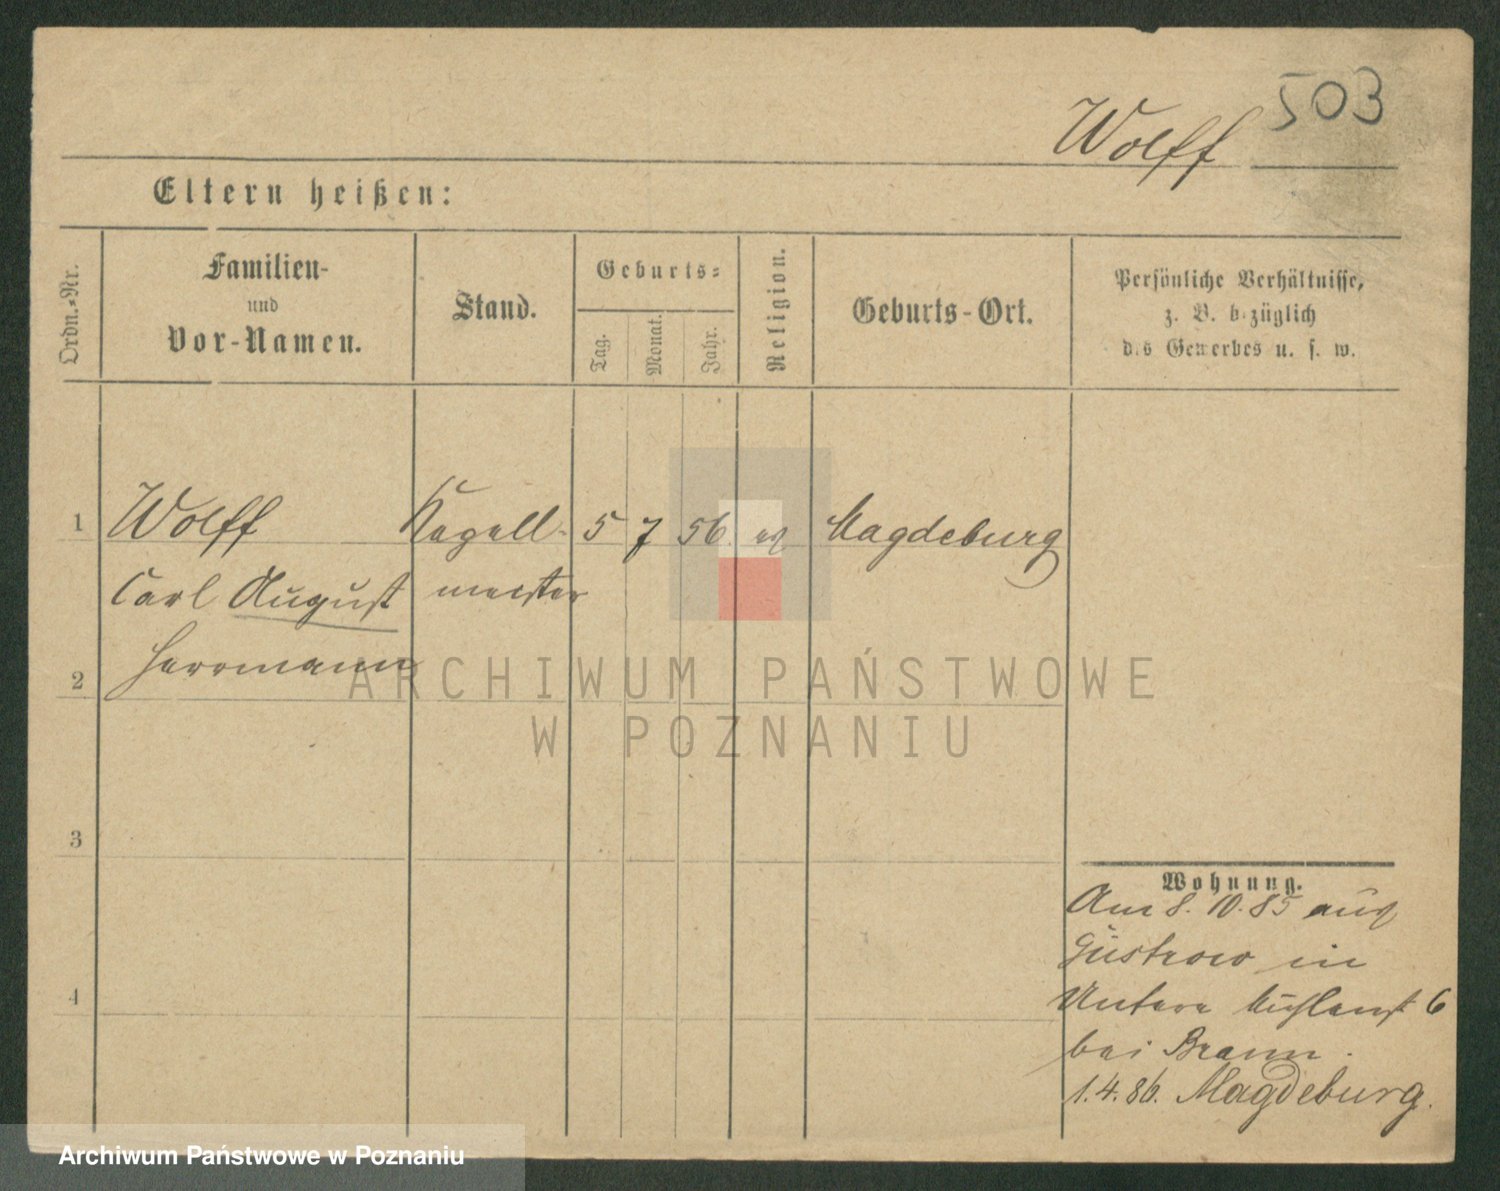 503
Wolff
Eltern heißen:
Ordn.-Nr.
Familien-
und
Vor-Namen.
Stand.
Geburts-
Tag.
Monat.
Jahr.
Religion.
Geburts-Ort.
Persönliche Verhältnisse,
z. B. bezüglich
des Gewerbes u. s. w.
1 Wolff Kapell- 5 7 56. ev Magdeburg
Carl August meister
Herrmann
2
3
4
Wohnung.
Am 8. 10. 85 aus
Güstrow in
Untere Mühlenst 6
bei Braun.
1.4.86. Magdeburg.
ARCHIWUM PAŃSTWOWE
W POZNANIU
Archiwum Państwowe w Poznaniu